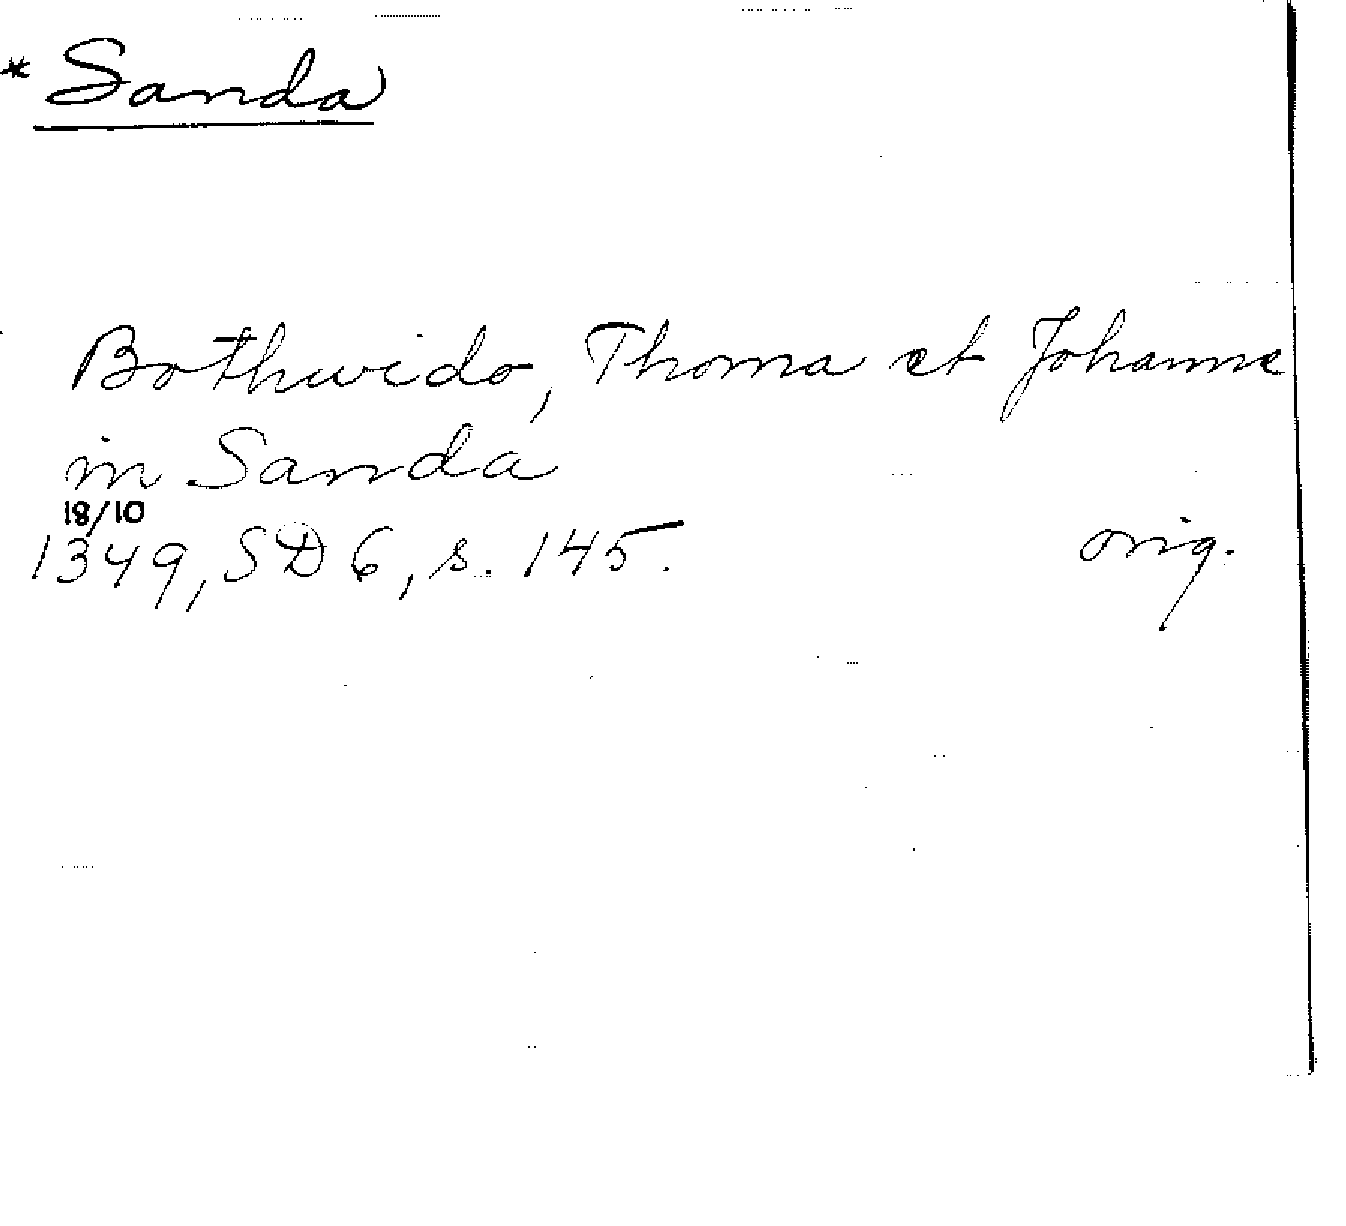 * Sanda
Bothvido, Thoma et Johanne
in Sanda
18/10
1349, SD 6, s. 145.
orig.